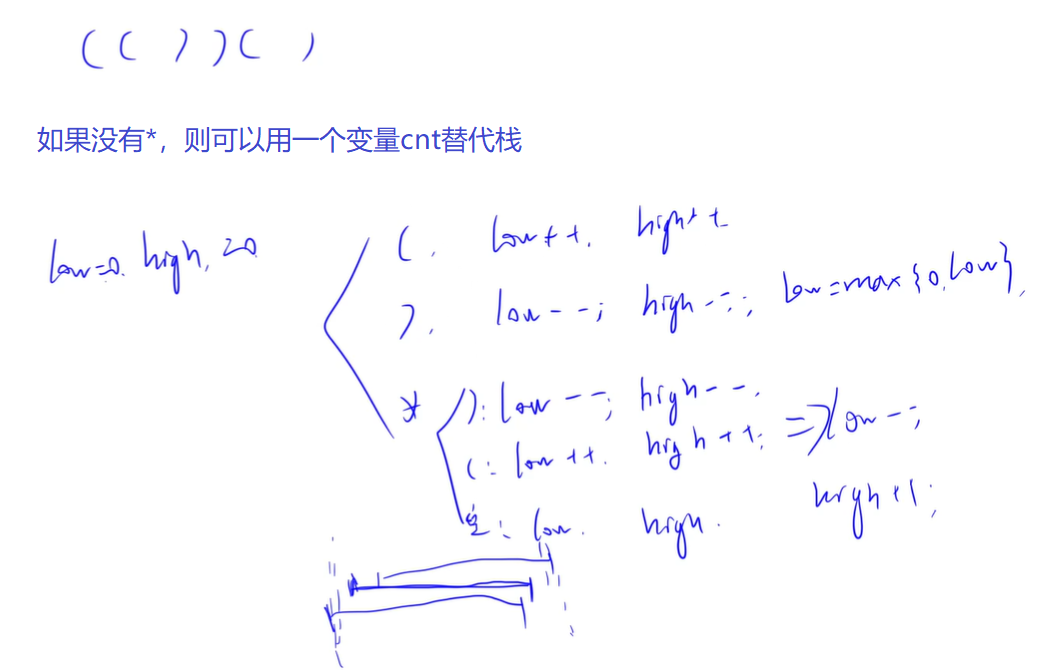 ( ( ) ) ( )
如果没有*，则可以用一个变量cnt替代栈
low=0. high, =0.
(. low++. high++
). low--; high--; low=max{0,low},
* ): low--; high--.
(: low++. high++; => low--;
空: low. high. high++;